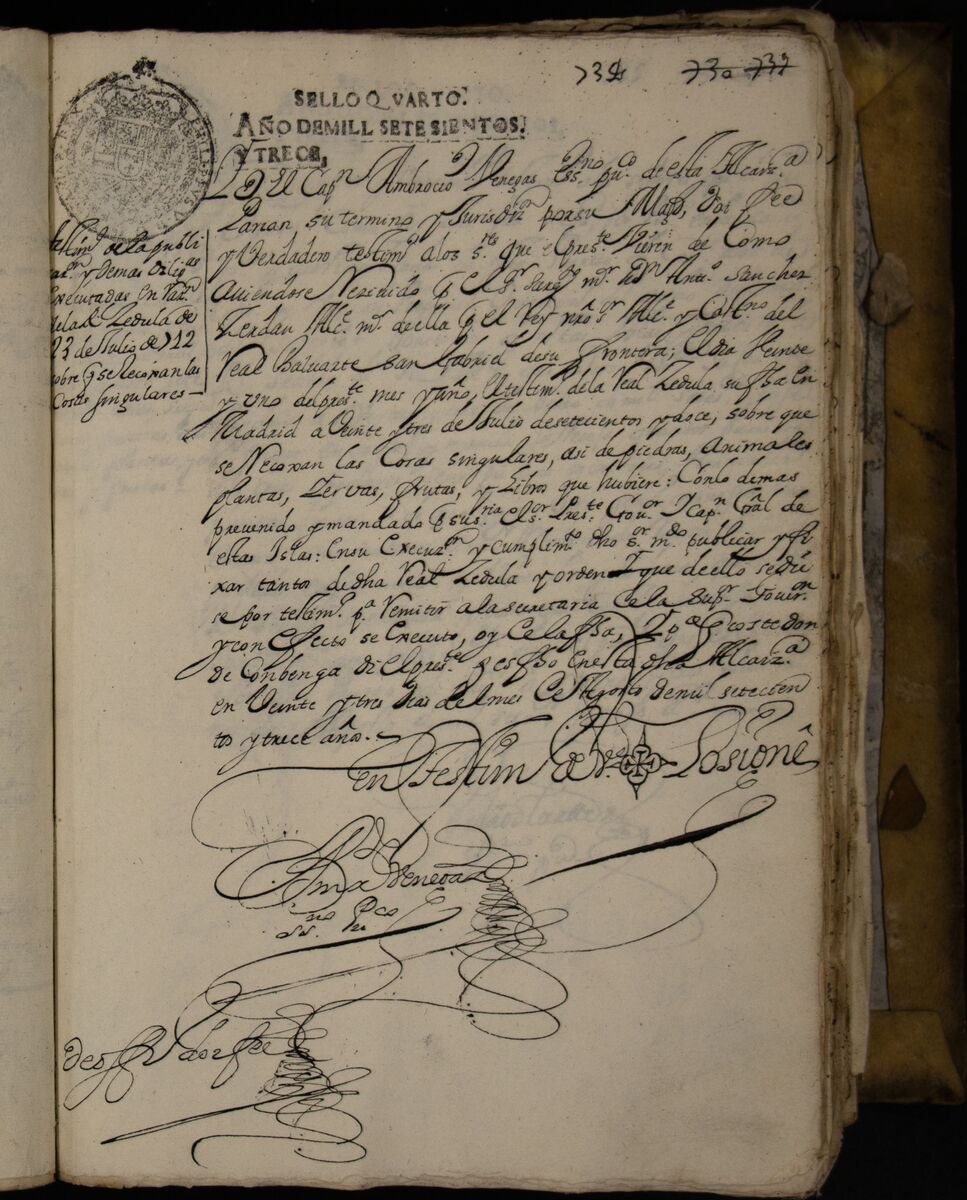 SELLO QVARTO.
AÑO DE MILL SETESIENTOS.
Y TRECE,
testimº de la publi
y demas dilig.as
executadas en raz.n
de la Rl Zedula de
23 de Julio de 712
sobre q se recoxan las
Cosas singulares —
Cap.n Ambrocio Venegas SS.no pu.co de esta Alcaiz.a
Parian su termino y Jurisdiz.n por su Mag.d, doi fee
y Verdadero testim.o a los s.res que el pres.te vieren de Como
Aviendose Recivido
Ant.o Sanchez
Zerdan Alc.e m.r de ella p. el Rey nro s.r Alc.e y Cast.no del
Real Baluarte San Gabriel de su frontera; el dia Veinte
y uno del pres.te mes y año, el testim.o de la Real Zedula su fha en
Madrid a Veinte y tres de Julio de setecientos y doce, sobre que
se Recoxan las Cosas singulares, asi de piedras, animales
plantas, Zervas, frutas, y Libros que hubiere: Con lo demas
prevenido y mandado p su s.ria el s.or Pres.te Gov.or y Cap.n Gral de
estas Islas: En su Execuz.on y cumplim.to dho s.or m.do publicar y fi
xar tantos de dha Real Zedula y orden Y que de ello se die
se por testim.o p.a Remitir a la secretaria de la Sup.r Gover.on
y con Effecto se Executo, oy de la fha, Y p.a q coste donde
de Conbenga di el pres.te q es fho en esta dha Alcaiz.a
en Veinte y tres dias del mes de Agosto de mil setecien
tos y trece años.-
en testim.o de V.d Lo sigñe
Amb.o Venegas
SS.no P.co